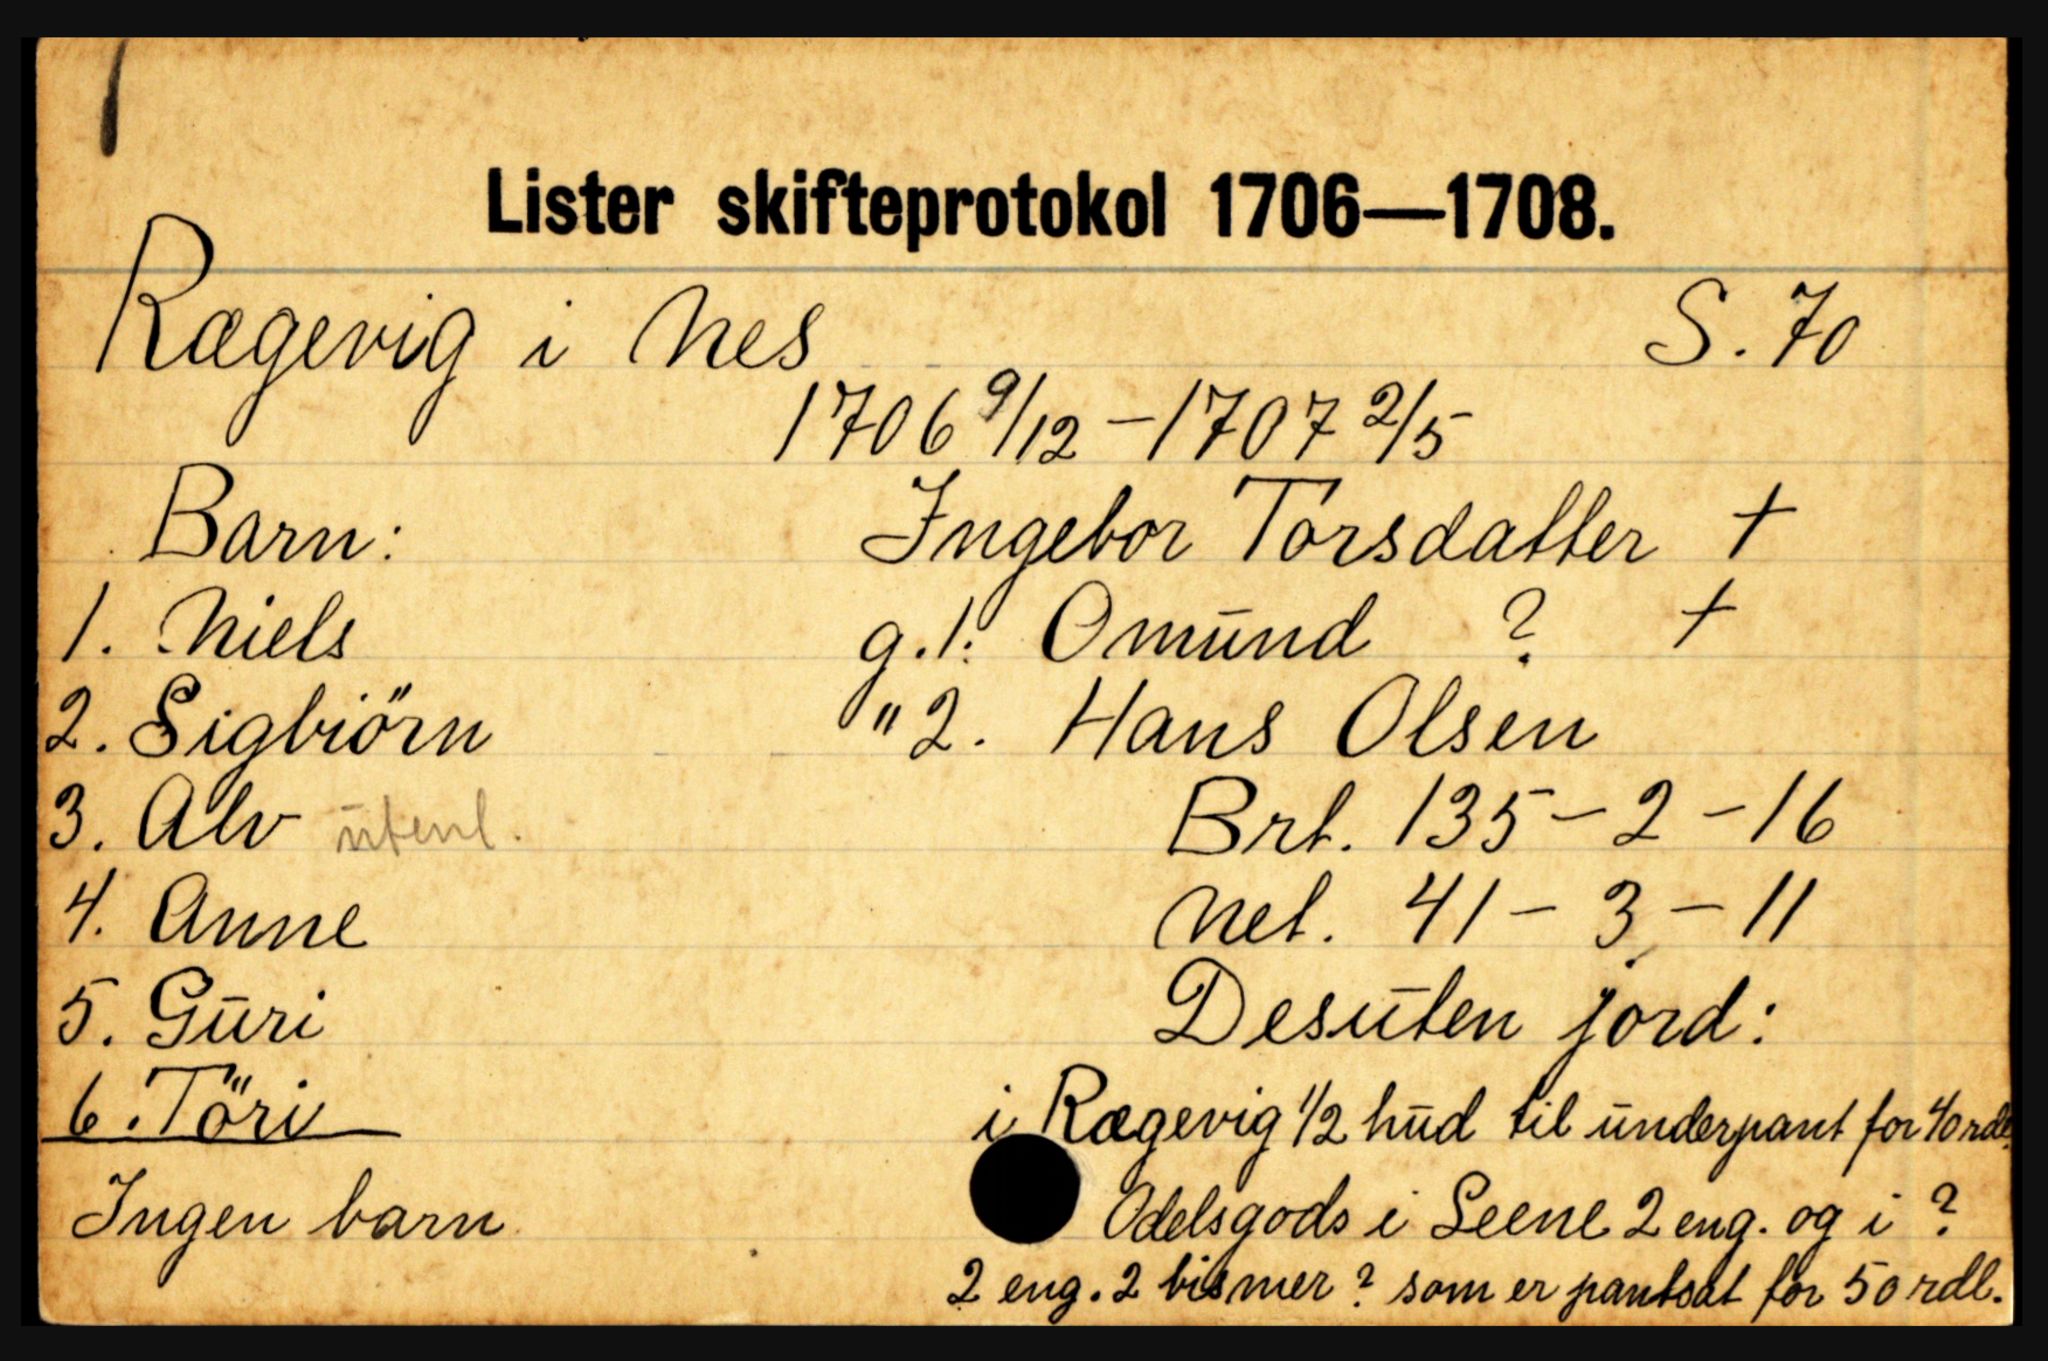 Lister skifteprotokol 1706—1708.
Rægevig i Nes S. 70
1706 9/12 – 1707 2/5
Barn: Ingebor Torsdatter +
1. Niels g. 1: Omund ? +
2. Sigbiörn " 2. Hans Olsen
3. Alv utenl. Brt. 135 – 2 – 16
4. Anne Net. 41 – 3 – 11
5. Guri Desuten jord:
6. Töri i Rægevig 1/2 hud til underpant for 40 rdl.
Ingen barn Odelsgods i Leene 2 eng. og i ?
2 eng. 2 bismer ? som er pantsat for 50 rdl.